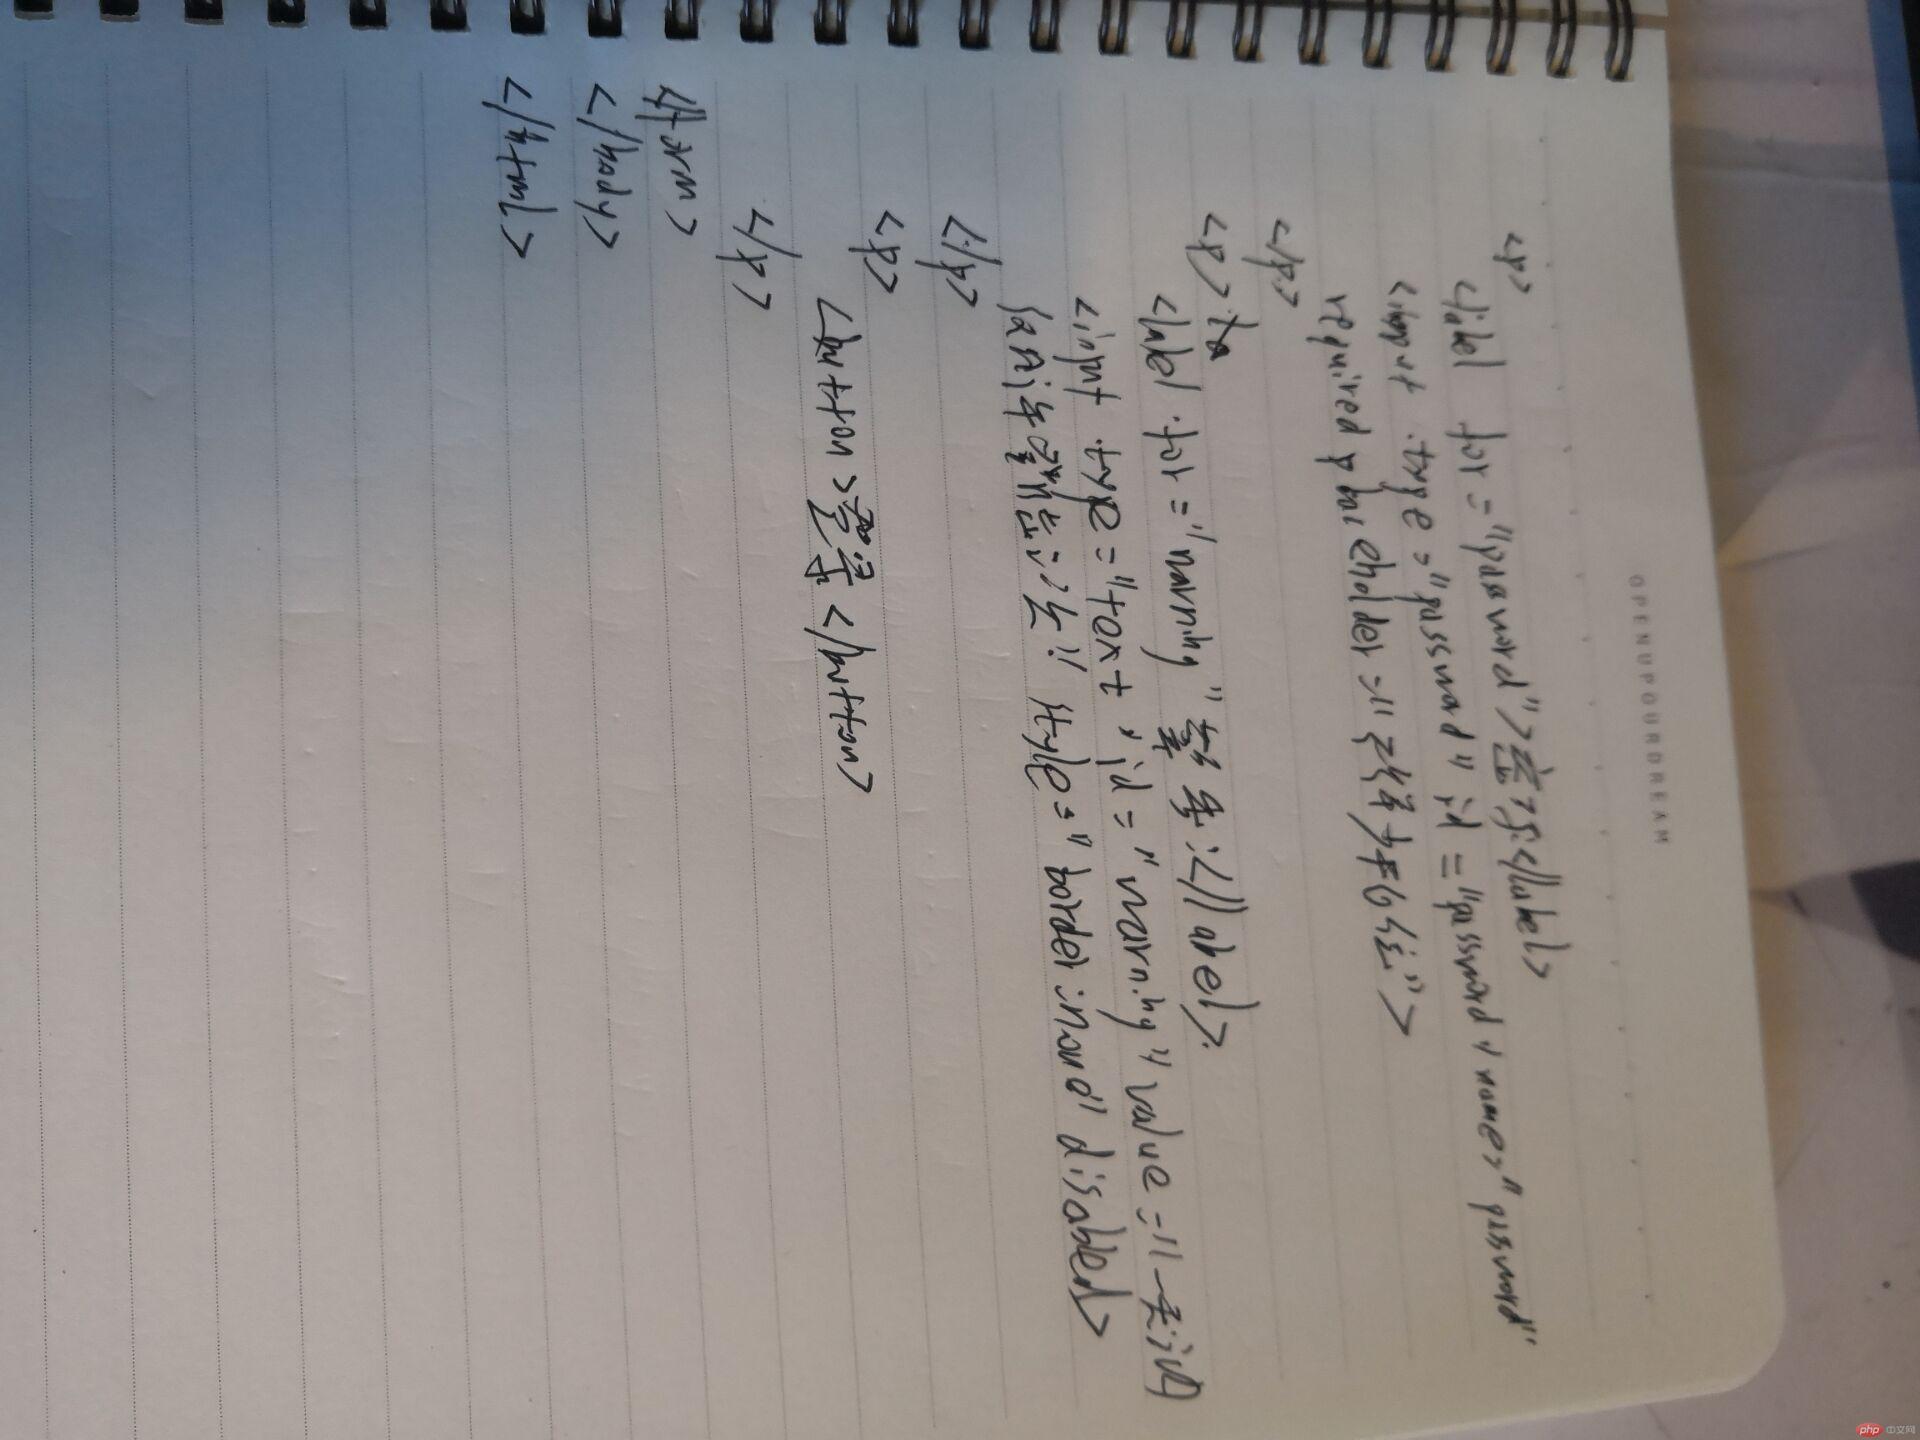 OPENUPOURDREAM
<p>
<label for="password">密码:</label>
<input type="password" id="password" name="password"
required placeholder="不能少于6位">
</p>
<p>
<label for="warning">警告:</label>
<input type="text" id="warning" value="一天
style="border:none" disabled>
</p>
<p>
<button>登录</button>
</p>
</form>
</body>
</html>
php 中文网